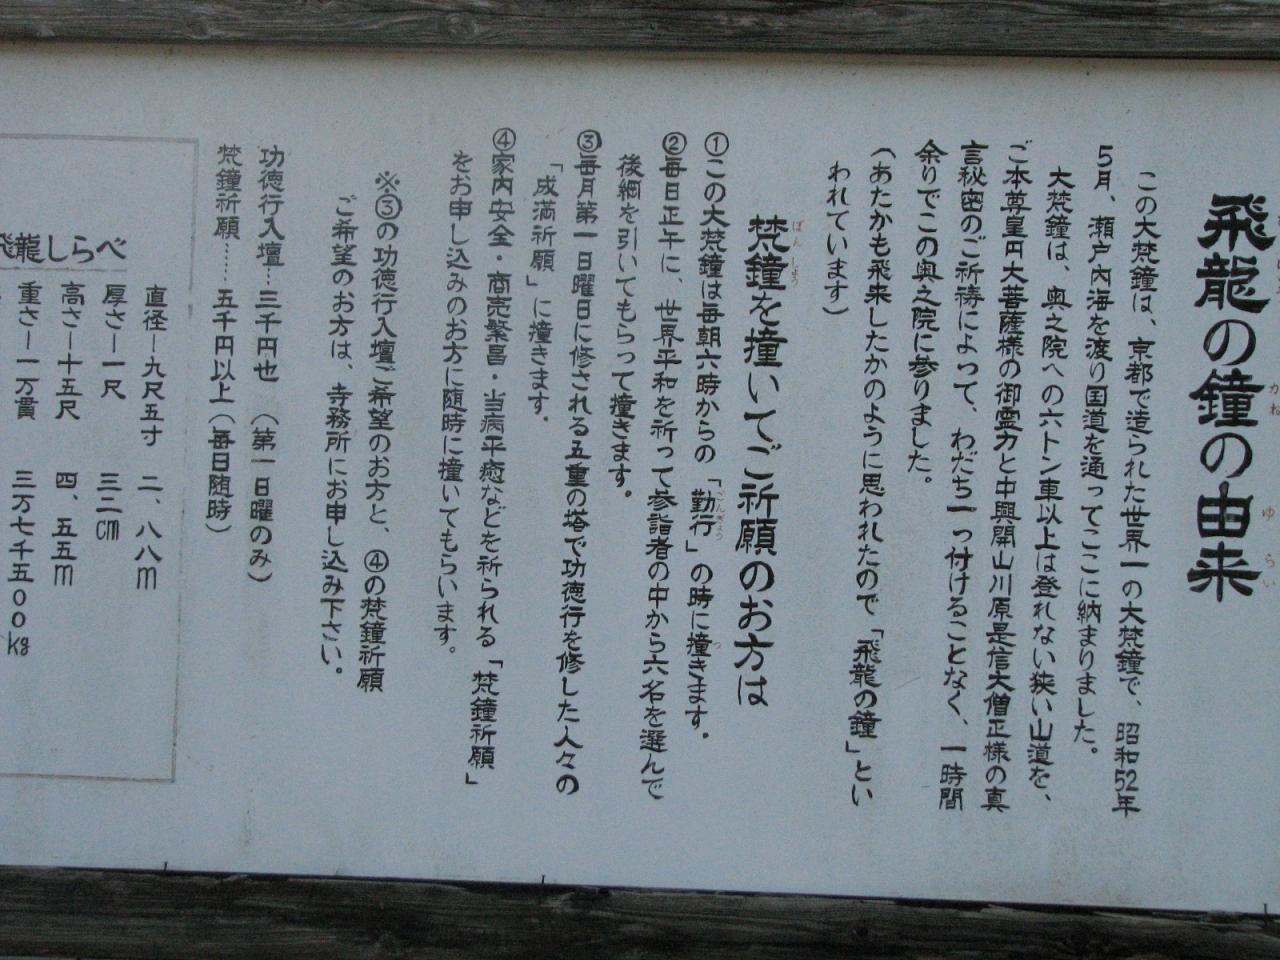 飛龍の鐘の由来
この大梵鐘は、京都で造られた世界一の大梵鐘で、昭和52年
5月、瀬戸内海を渡り国道を通ってここに納まりました。
大梵鐘は、奥之院への六トン車以上は登れない狭い山道を、
ご本尊皇円大菩薩様の御霊力と中興開山川原是信大僧正様の真
言秘密のご祈祷によって、わだち一つ付けることなく、一時間
余りでこの奥之院に参りました。
(あたかも飛来したかのように思われたので「飛龍の鐘」とい
われています)
梵鐘を撞いてご祈願のお方は
①この大梵鐘は毎朝六時からの「勤行」の時に撞きます。
②毎日正午に、世界平和を祈って参詣者の中から六名を選んで
後綱を引いてもらって撞きます。
③毎月第一日曜日に修される五重の塔で功徳行を修した人々の
「成満祈願」に撞きます。
④家内安全・商売繁昌・当病平癒などを祈られる「梵鐘祈願」
をお申し込みのお方に随時に撞いてもらいます。
※③の功徳行入壇ご希望のお方と、④の梵鐘祈願
ご希望のお方は、寺務所にお申し込み下さい。
功徳行入壇…三千円也(第一日曜のみ)
梵鐘祈願……五千円以上(毎日随時)
飛龍しらべ
直径ー九尺五寸 二、八八m
厚さー一尺 三二cm
高さー十五尺 四、五五m
重さー一万貫 三万七千五〇〇kg